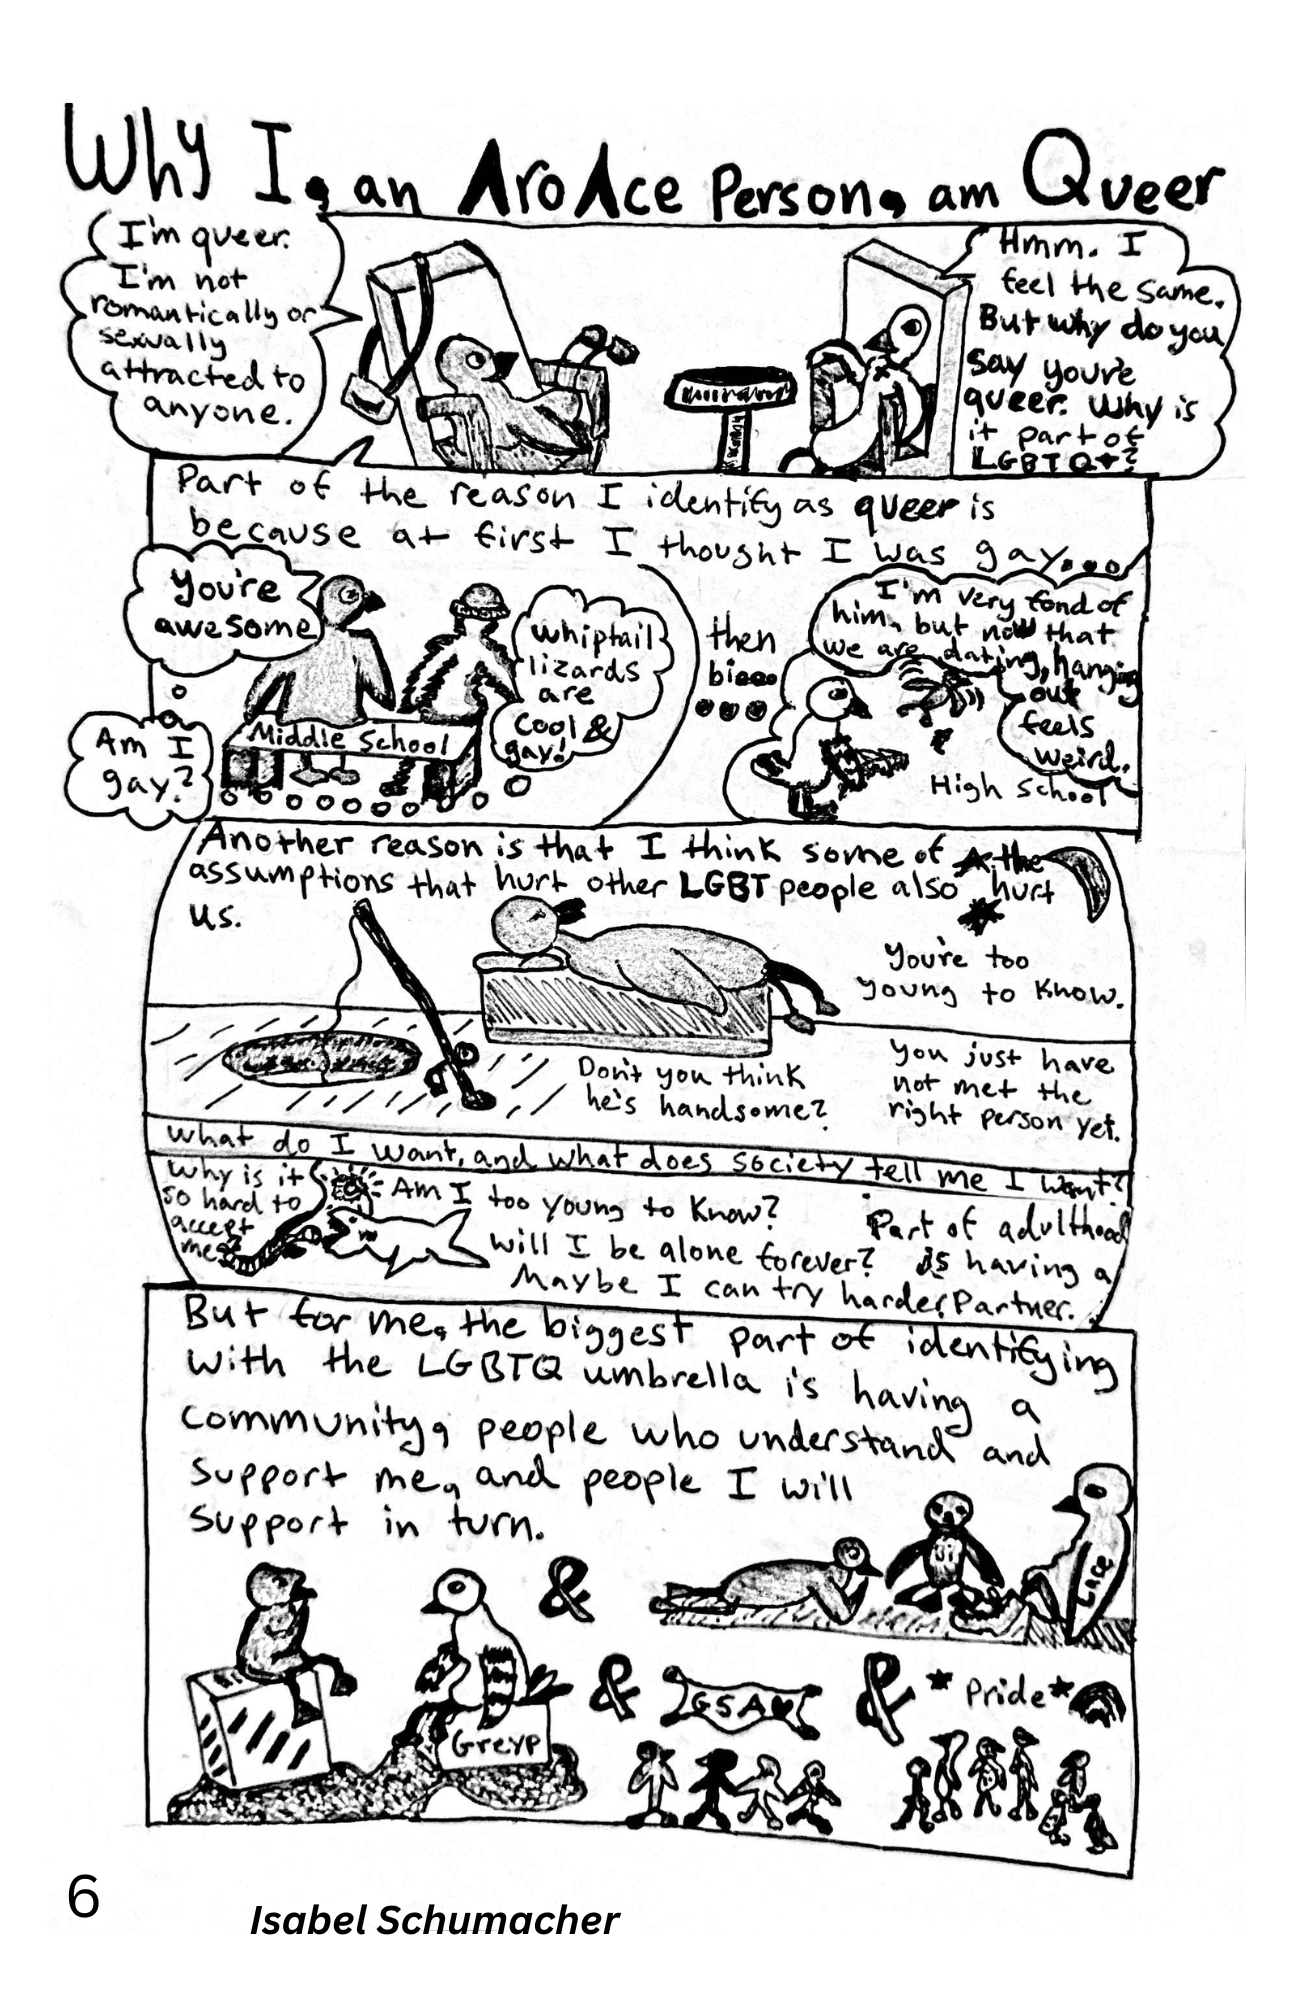 Why I, an AroAce Person, am Queer
I'm queer.
I'm not
romantically or
sexually
attracted to
anyone.
Hmm. I
feel the same.
But why do you
say you're
queer. Why is
it part of
LGBTQ+?
Part of the reason I identify as queer is
because at first I thought I was gay...
You're
awesome
Am I
gay?
Middle School
Whiptail
lizards
are
cool &
gay!
then
bi...
...
I'm very fond of
him, but now that
we are dating, hanging
out
feels
weird.
High School
Another reason is that I think some of the
assumptions that hurt other LGBT people also hurt
us.
You're too
young to know.
Don't you think
he's handsome?
You just have
not met the
right person yet.
What do I want, and what does society tell me I want?
Why is it
so hard to
accept
me?
Am I too young to know?
Will I be alone forever?
Maybe I can try harder.
Part of adulthood
is having a
partner.
But for me, the biggest part of identifying
with the LGBTQ umbrella is having a
community, people who understand and
support me, and people I will
support in turn.
&
Lace
Greyp
& GSA♥ & *Pride*
6
Isabel Schumacher